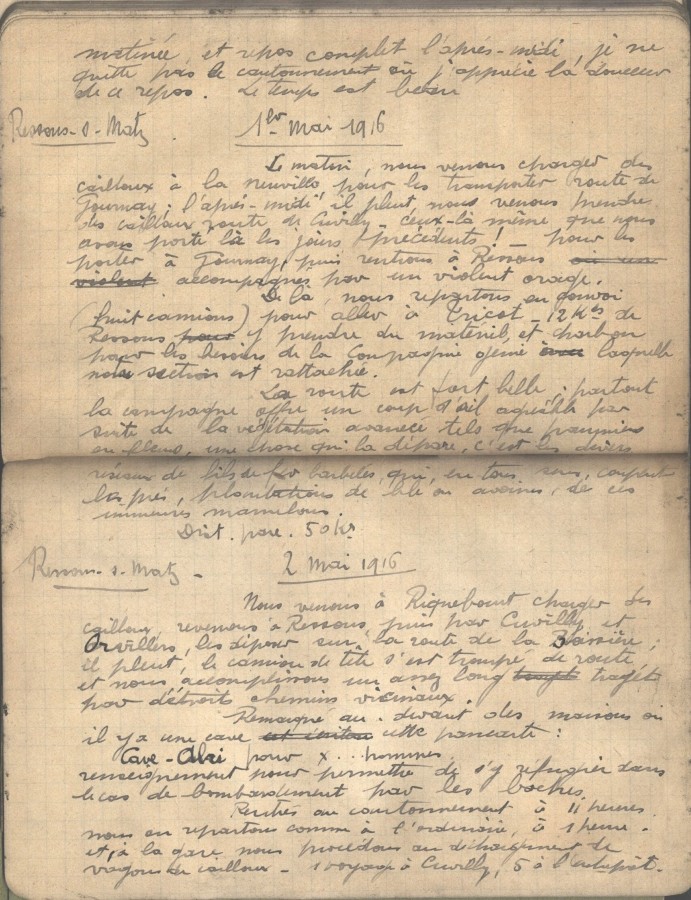 matinée, et repos complet l'après-midi, je ne
quitte pas le cantonnement où j'apprécie la douceur
de ce repos. Le temps est beau
Ressons-s-Matz
1er Mai 1916
Le matin, nous venons charger des
cailloux à la neuville, pour les transporter route de
Gournay; l'après-midi, il pleut, nous venons prendre
des cailloux route de Cuvilly - ceux-là même que nous
avons porté là les jours précédents! - pour les
porter à Gournay, puis rentrons à Ressons
violent accompagnés par un violent orage.
De là, nous repartons en convoi
(huit camions) pour aller à Tricot - 12 Ks de
Ressons pour y prendre du matériel, et charbon
pour les besoins de la Compagnie génie laquelle
notre section est rattachée.
La route est fort belle; partout
la campagne offre un coup d'œil agréable par
suite de la végétation avancée tels que pommiers
en fleurs, une chose qui la dépare, c'est les divers
réseaux de fils de fer barbelés, qui, en tous sens, coupent
les prés, plantations de blé ou avoines, de ces
immenses mamelons.
Dist. parc. 50 Ks
Ressons-s-Matz -
2 Mai 1916
Nous venons à Riquebourt charger des
cailloux, revenons à Ressons, puis par Cuvilly et
Orvillers, les déposer sur la route de la Boissière;
il pleut, le camion de tête s'est trompé de route,
et nous accomplissons un assez long trajet
par détroits chemins vicinaux.
Remarqué au-devant des maisons où
il y a une cave cette pancarte:
Cave-Abri pour x... hommes
renseignement pour permettre de s'y réfugier dans
le cas de bombardement par les boches.
Rentrés au cantonnement à 11 heures
nous en repartons comme à l'ordinaire, à 1 heure.
et, à la gare nous procédons au déchargement de
wagons de cailloux - 1 voyage à Cuvilly, 5 à l'entrepôt.